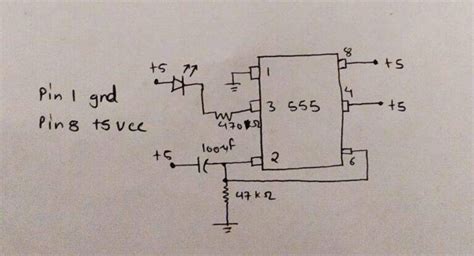 Pin 1 gnd
Pin 8 +5 vcc
+5
1
3
555
2
8
+5
4
+5
6
470KΩ
+5
100uf
47KΩ